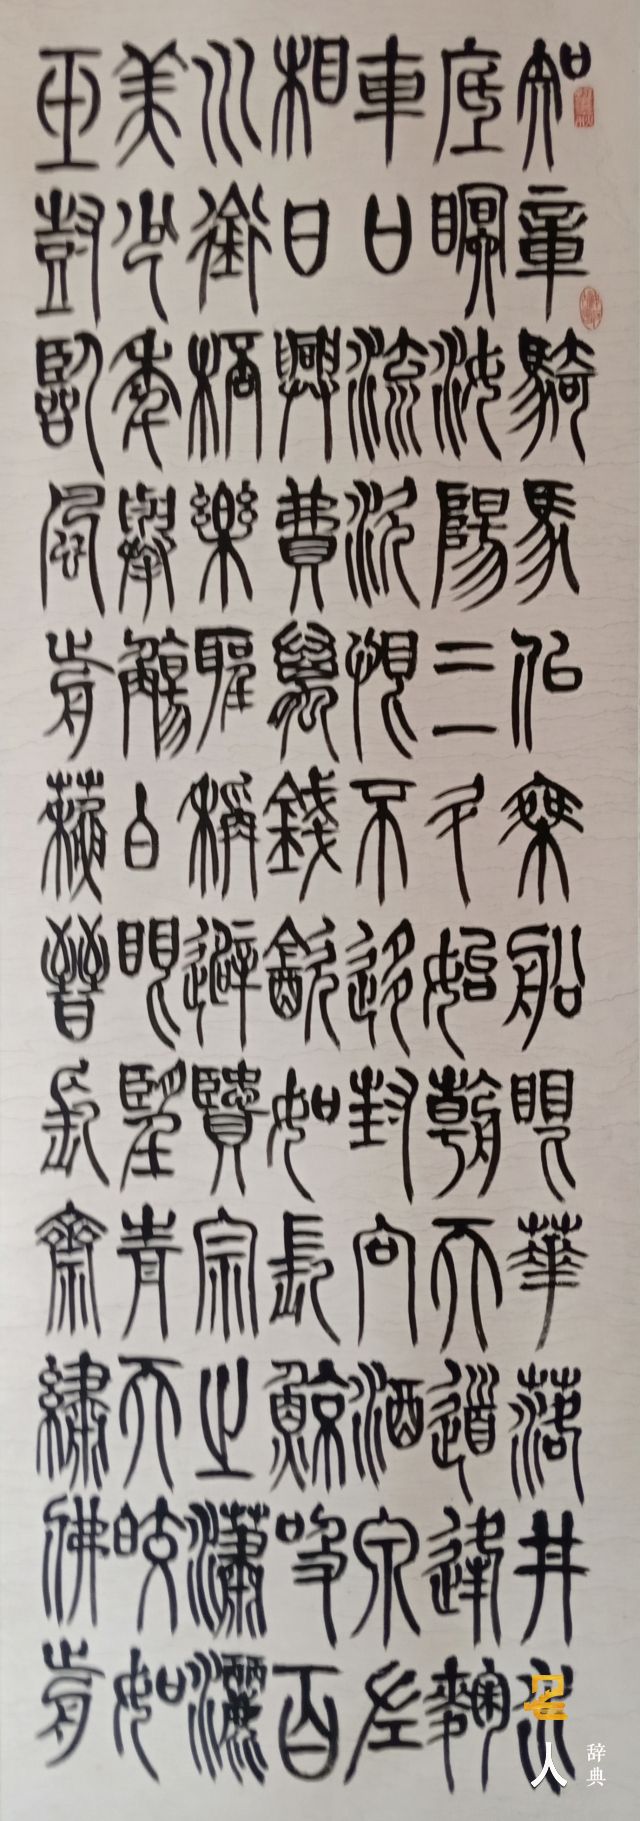 知章騎馬似乘船眼華落井水
底瞑汝陽三斗始朝天道逢麴
車口流涎恨不移封向酒泉左
相日興費萬錢飲如長鯨吸百
川銜桮樂聖稱避賢宗之瀟灑
美少年舉觴白眼望青天皎如
玉樹臨風前蘇晉長齋繡佛前
名人
辞典